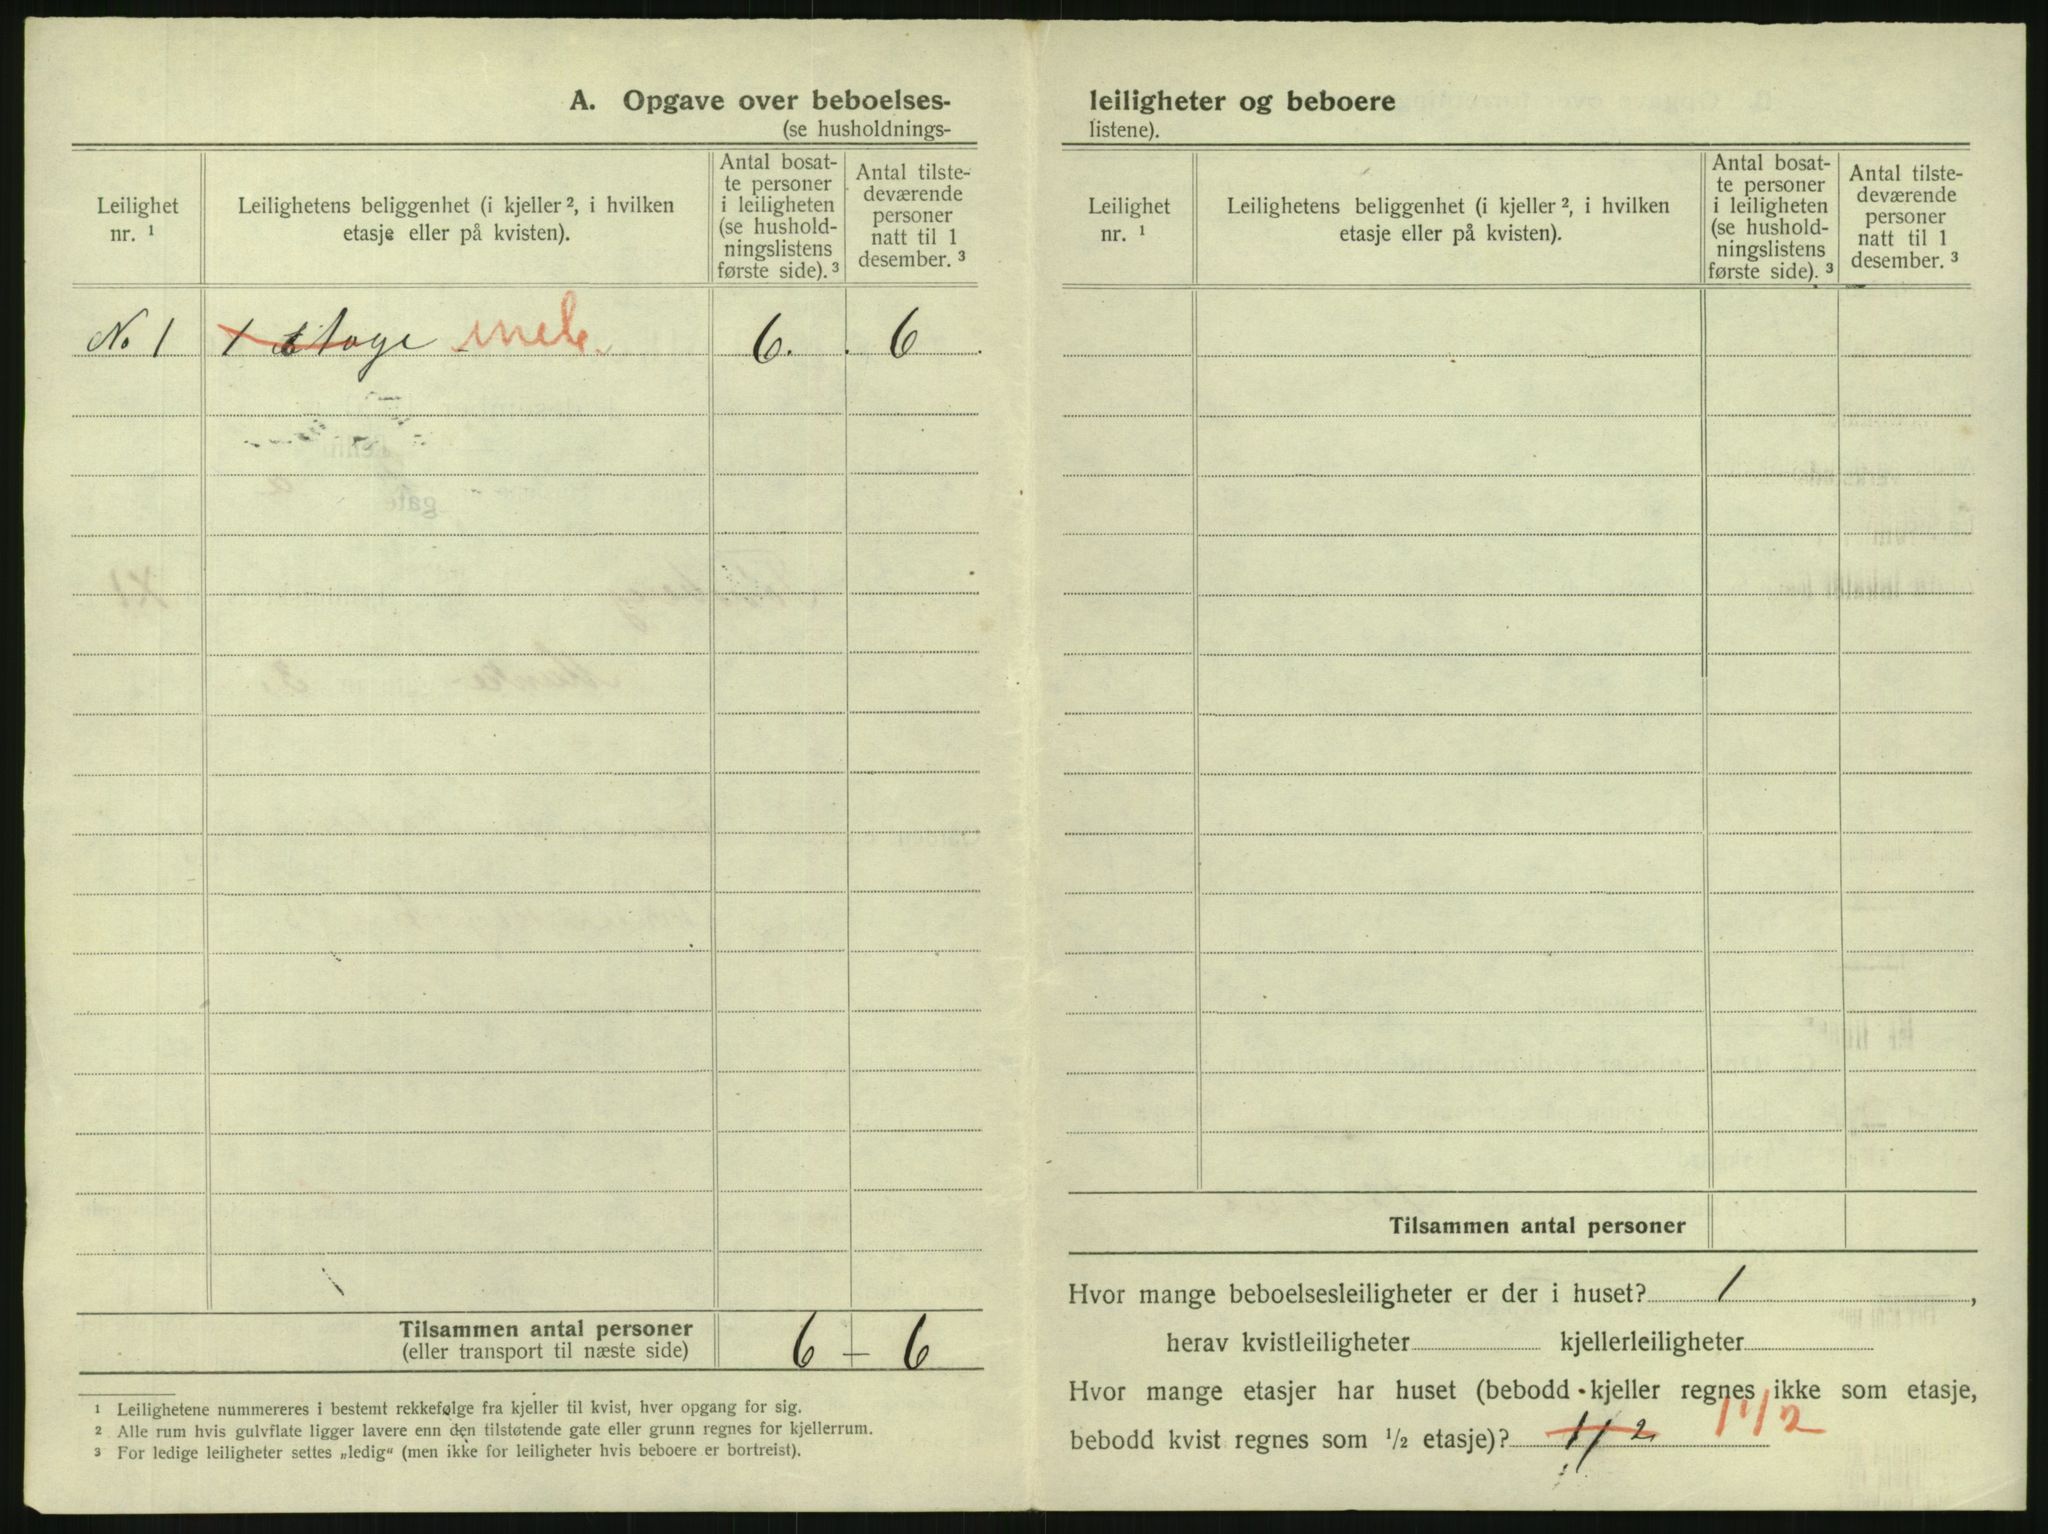 A. Opgave over beboelses-
(se husholdnings-
Leilighet
nr. ¹
Leilighetens beliggenhet (i kjeller ², i hvilken
etasje eller på kvisten).
Antal bosat-
te personer
i leiligheten
(se hushold-
ningslistens
første side). ³
Antal tilste-
deværende
personer
natt til 1
desember. ³
No 1 1 etage 6. 6
Tilsammen antal personer
(eller transport til næste side)
6 – 6
¹ Leilighetene nummereres i bestemt rekkefølge fra kjeller til kvist, hver opgang for sig.
² Alle rum hvis gulvflate ligger lavere enn den tilstøtende gate eller grunn regnes for kjellerrum.
³ For ledige leiligheter settes „ledig“ (men ikke for leiligheter hvis beboere er bortreist).
leiligheter og beboere
listene).
Leilighet
nr. ¹
Leilighetens beliggenhet (i kjeller ², i hvilken
etasje eller på kvisten).
Antal bosat-
te personer
i leiligheten
(se hushold-
ningslistens
første side). ³
Antal tilste-
deværende
personer
natt til 1
desember. ³
Tilsammen antal personer
Hvor mange beboelsesleiligheter er der i huset? 1,
herav kvistleiligheter kjellerleiligheter
Hvor mange etasjer har huset (bebodd kjeller regnes ikke som etasje,
bebodd kvist regnes som ½ etasje)? 1/2 1 1/2